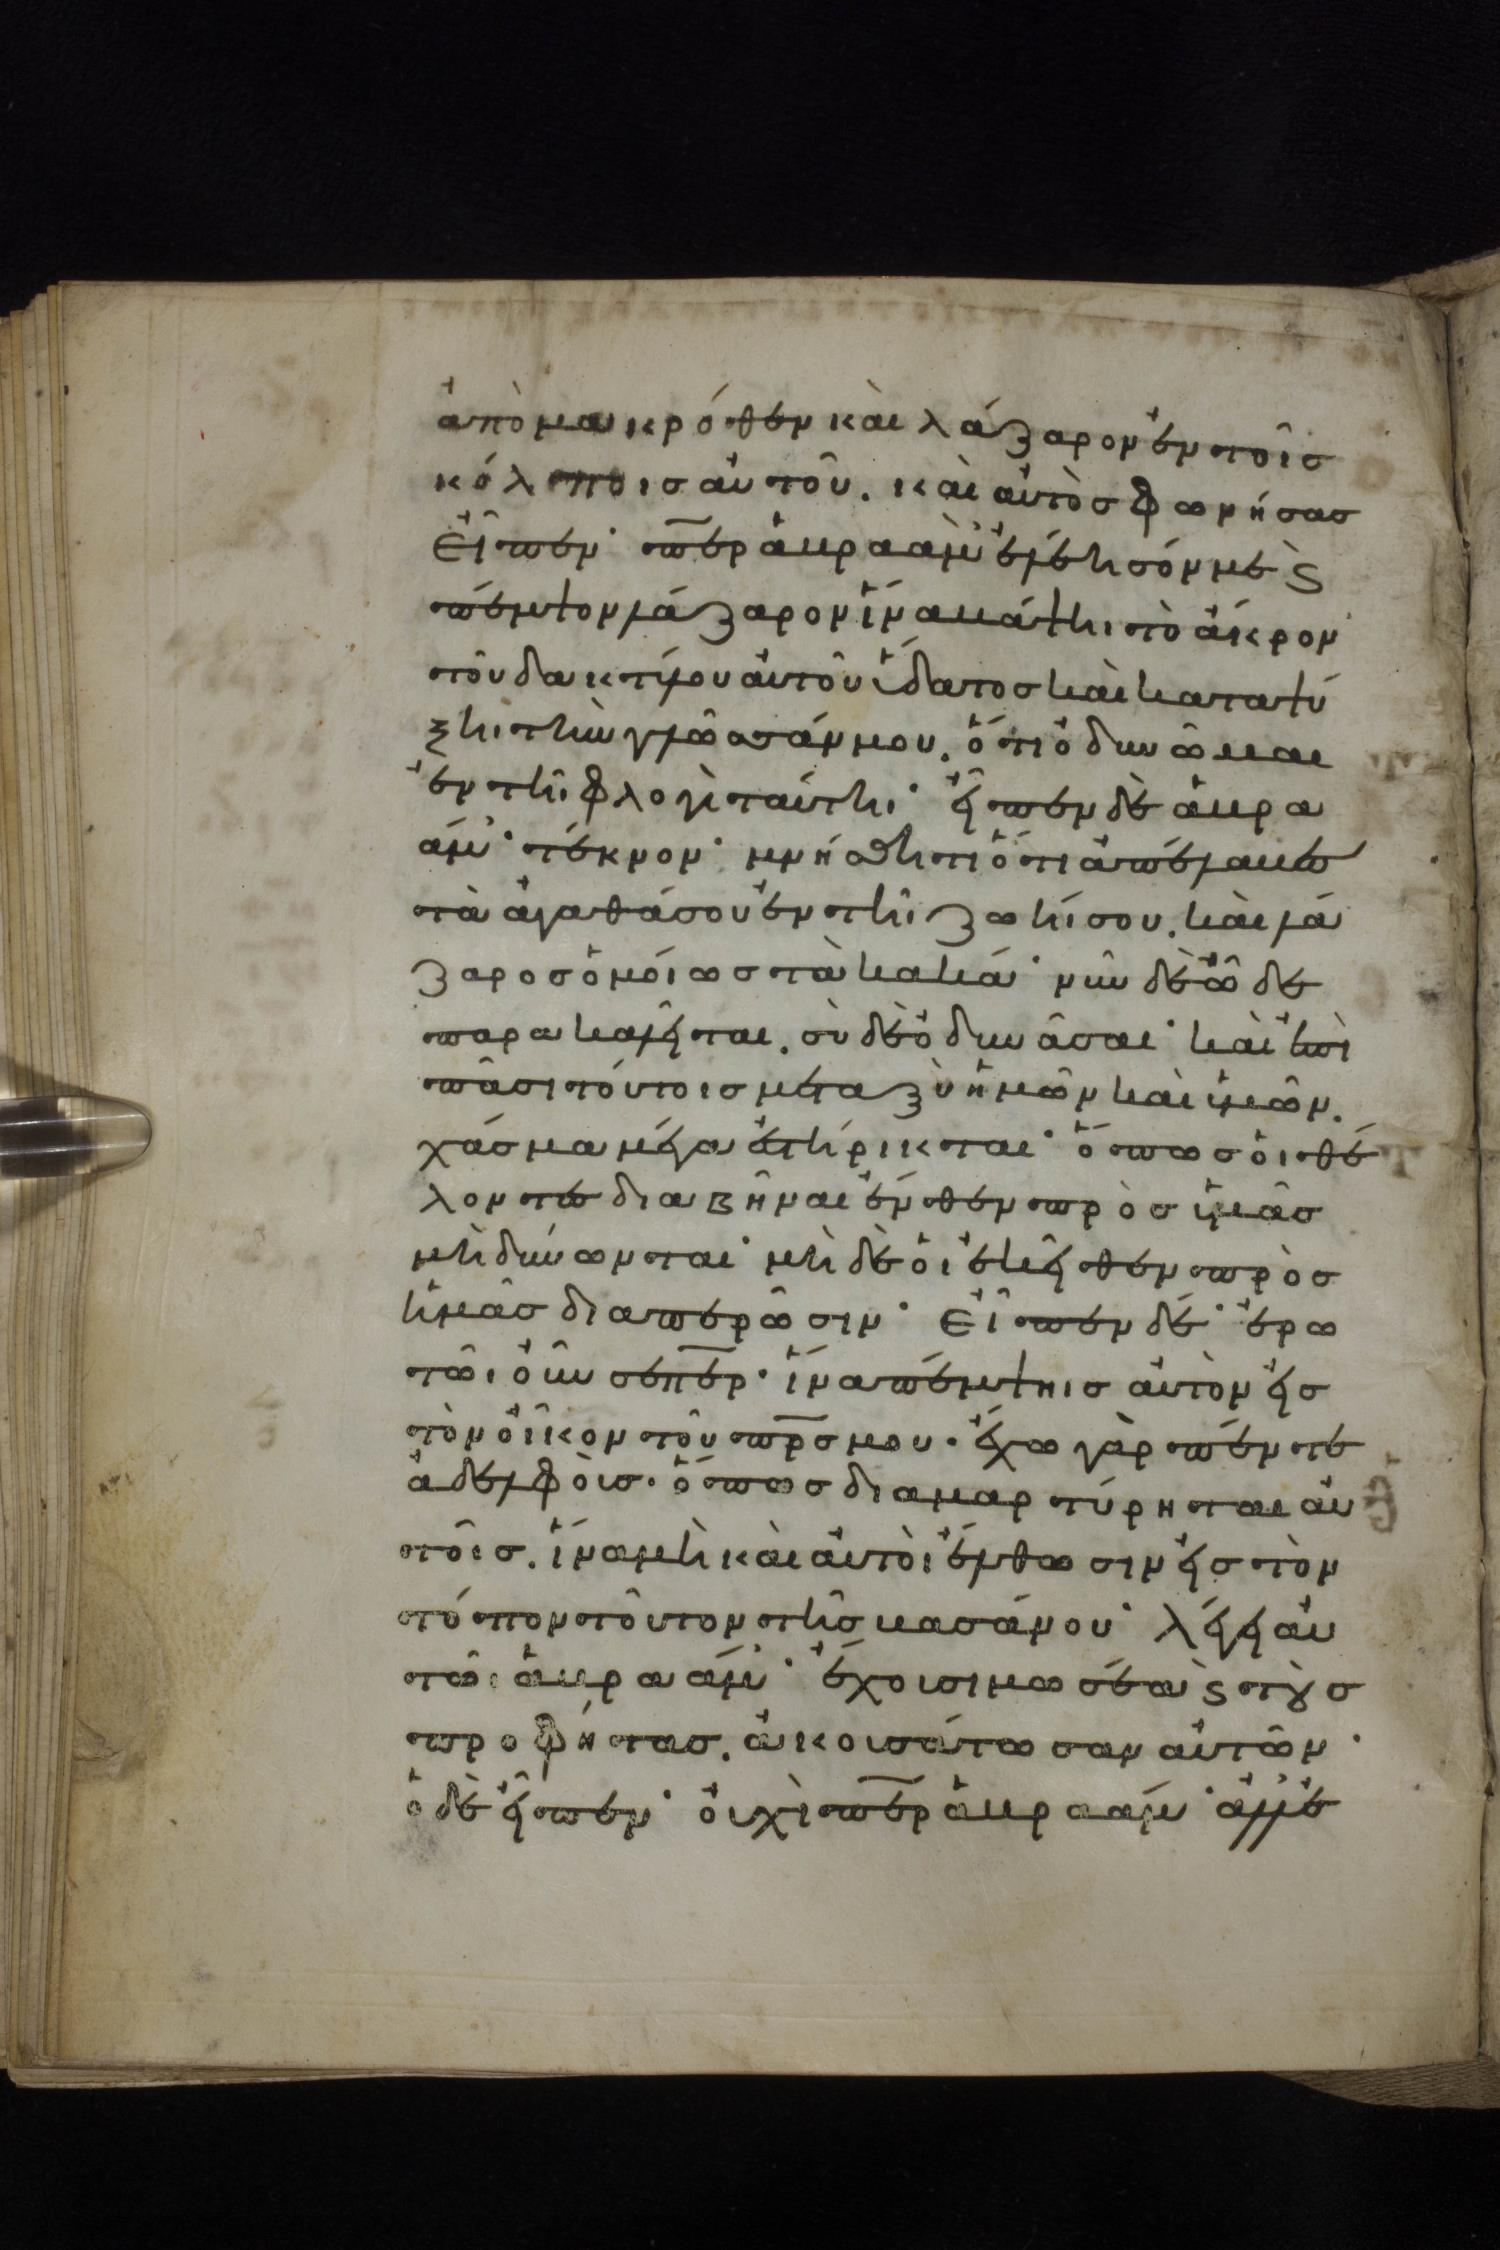 ἀπὸ μακρόθεν καὶ λάζαρον ἐν τοῖσ
κόλποισ αὐτοῦ. καὶ αὐτὸσ φωνήσασ
εἶπεν· περ ἀβρααμ ἐλέησόν με ϛ
πέμψον λάζαρον ἵνα βάψη τὸ ἄκρον
τοῦ δακτύλου αὐτοῦ ὕδατοσ καὶ καταψύ
ξη τὴν γλῶσσάν μου. ὅτι ὀδυνῶμαι
ἐν τῆ φλογὶ ταύτη· εἶπεν δὲ ἀβρα
άμ· τέκνον· μνήσθητι ὅτι ἀπέλαβεσ
τὰ ἀγαθά σου ἐν τῆ ζωῆ σου. καὶ λά
ζαροσ ὁμοίωσ τὰ κακά· νῦν δὲ ὧδε
παρακαλεῖται. σὺ δὲ ὀδυνᾶσαι· καὶ ἐπὶ
πᾶσι τούτοισ μεταξὺ ἡμῶν καὶ ὑμῶν.
χάσμα μέγα ἐστήρικται· ὅπωσ οἱ θέ
λοντεσ διαβῆναι ἔνθεν πρὸσ ὑμᾶσ
μὴ δύνωνται· μὴ δὲ οἱ ἐκεῖθεν πρὸσ
ἡμᾶσ διαπερῶσιν· εἶπεν δέ· ἐρω
τῶ οὖν σε περ· ἵνα πέμψηισ αὐτὸν εἰσ
τὸν οἶκον τοῦ πρσ μου· ἔχω γὰρ πέντε
ἀδελφοὺσ· ὅπωσ διαμαρτύρηται αὐ
τοῖσ. ἵνα μὴ καὶ αὐτοὶ ἔλθωσιν εἰσ τὸν
τόπον τοῦτον τῆσ βασάνου· λέγει αὐ
τῶ ἀβραάμ· ἔχουσι μωσέα ϛ τοὺσ
προφήτασ. ἀκουσάτωσαν αὐτῶν·
ὁ δὲ εἶπεν· οὐχὶ περ ἀβρααμ· ἀλλ' ἐ